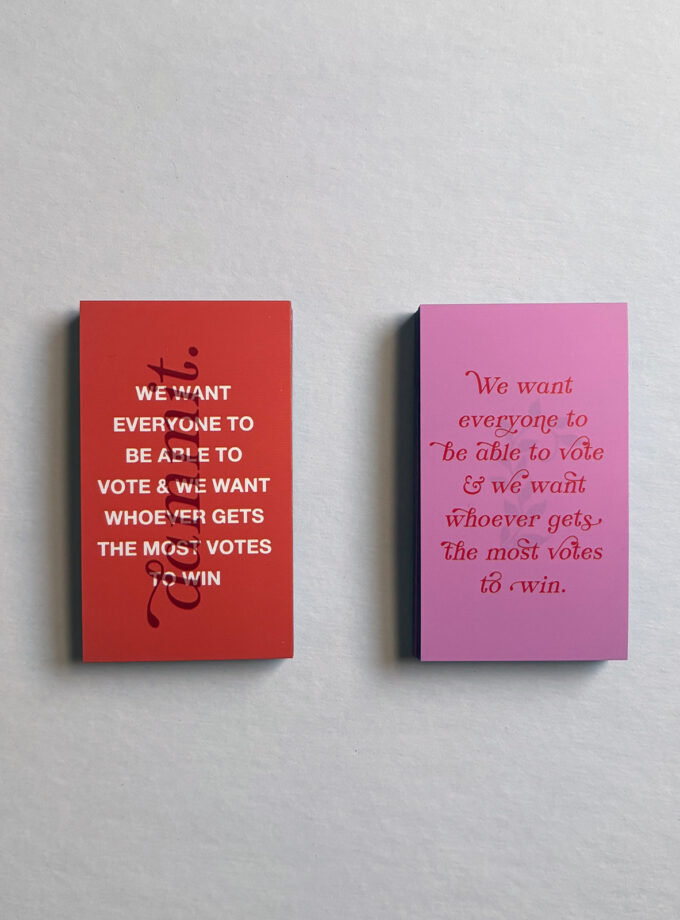 WE WANT
EVERYONE TO
BE ABLE TO
VOTE & WE WANT
WHOEVER GETS
THE MOST VOTES
TO WIN
dammit.
We want
everyone to
be able to vote
& we want
whoever gets
the most votes
to win.